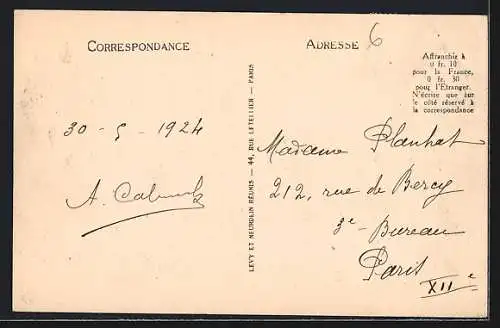 CORRESPONDANCE
ADRESSE
6
Affranchir à
0 fr. 10
pour la France,
0 fr. 30
pour l'Etranger.
N'écrire que sur
le côté réservé à
la correspondance
LEVY ET NEURDEIN RÉUNIS — 44, RUE LETELLIER — PARIS
30 - 5 - 1924
A.
Madame Planhat
212, rue de Bercy
3e Bureau
Paris
XIIe